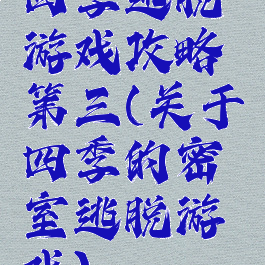 四季逃脱
游戏攻略
第三(关于
四季的密
室逃脱游
戏)